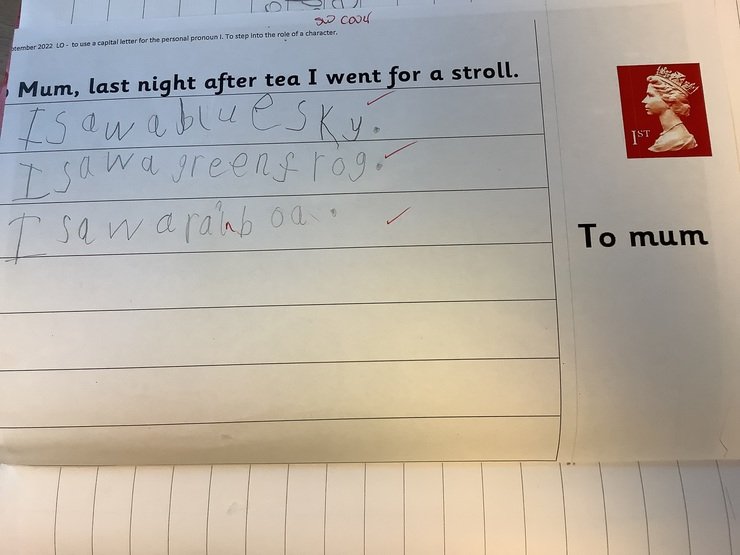 SW COOK
ptember 2022 LO - to use a capital letter for the personal pronoun I. To step into the role of a character.
Mum, last night after tea I went for a stroll.
I saw a blue sky.
I saw a green frog.
I saw a rainboa.
1ST
To mum